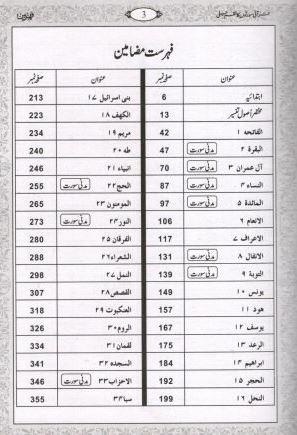 3
فہرست مضامین
عنوان صفحہ نمبر
ابتدائیہ 6
مختصر اصول تفسیر 13
الفاتحہ ۱ 42
البقرۃ ۲ مدنی سورت 47
آل عمران ۳ مدنی سورت 70
النساء ۴ مدنی سورت 87
المائدۃ ۵ مدنی سورت 97
الانعام ۶ 106
الاعراف ۷ 117
الانفال ۸ مدنی سورت 131
التوبۃ ۹ مدنی سورت 139
یونس ۱۰ 149
ھود ۱۱ 157
یوسف ۱۲ 167
الرعد ۱۳ 175
ابراھیم ۱۴ 184
الحجر ۱۵ 192
النحل ۱۶ 199
عنوان صفحہ نمبر
بنی اسرائیل ۱۷ 213
الکھف ۱۸ 223
مریم ۱۹ 234
طہ ۲۰ 240
انبیاء ۲۱ 246
الحج ۲۲ مدنی سورت 255
المومنون ۲۳ 265
النور ۲۴ مدنی سورت 273
الفرقان ۲۵ 280
الشعراء ۲۶ 288
النمل ۲۷ 298
القصص ۲۸ 307
العنکبوت ۲۹ 318
الروم ۳۰ 326
لقمان ۳۱ 334
السجدہ ۳۲ 341
الاحزاب ۳۳ مدنی سورت 346
سبا ۳۴ 355